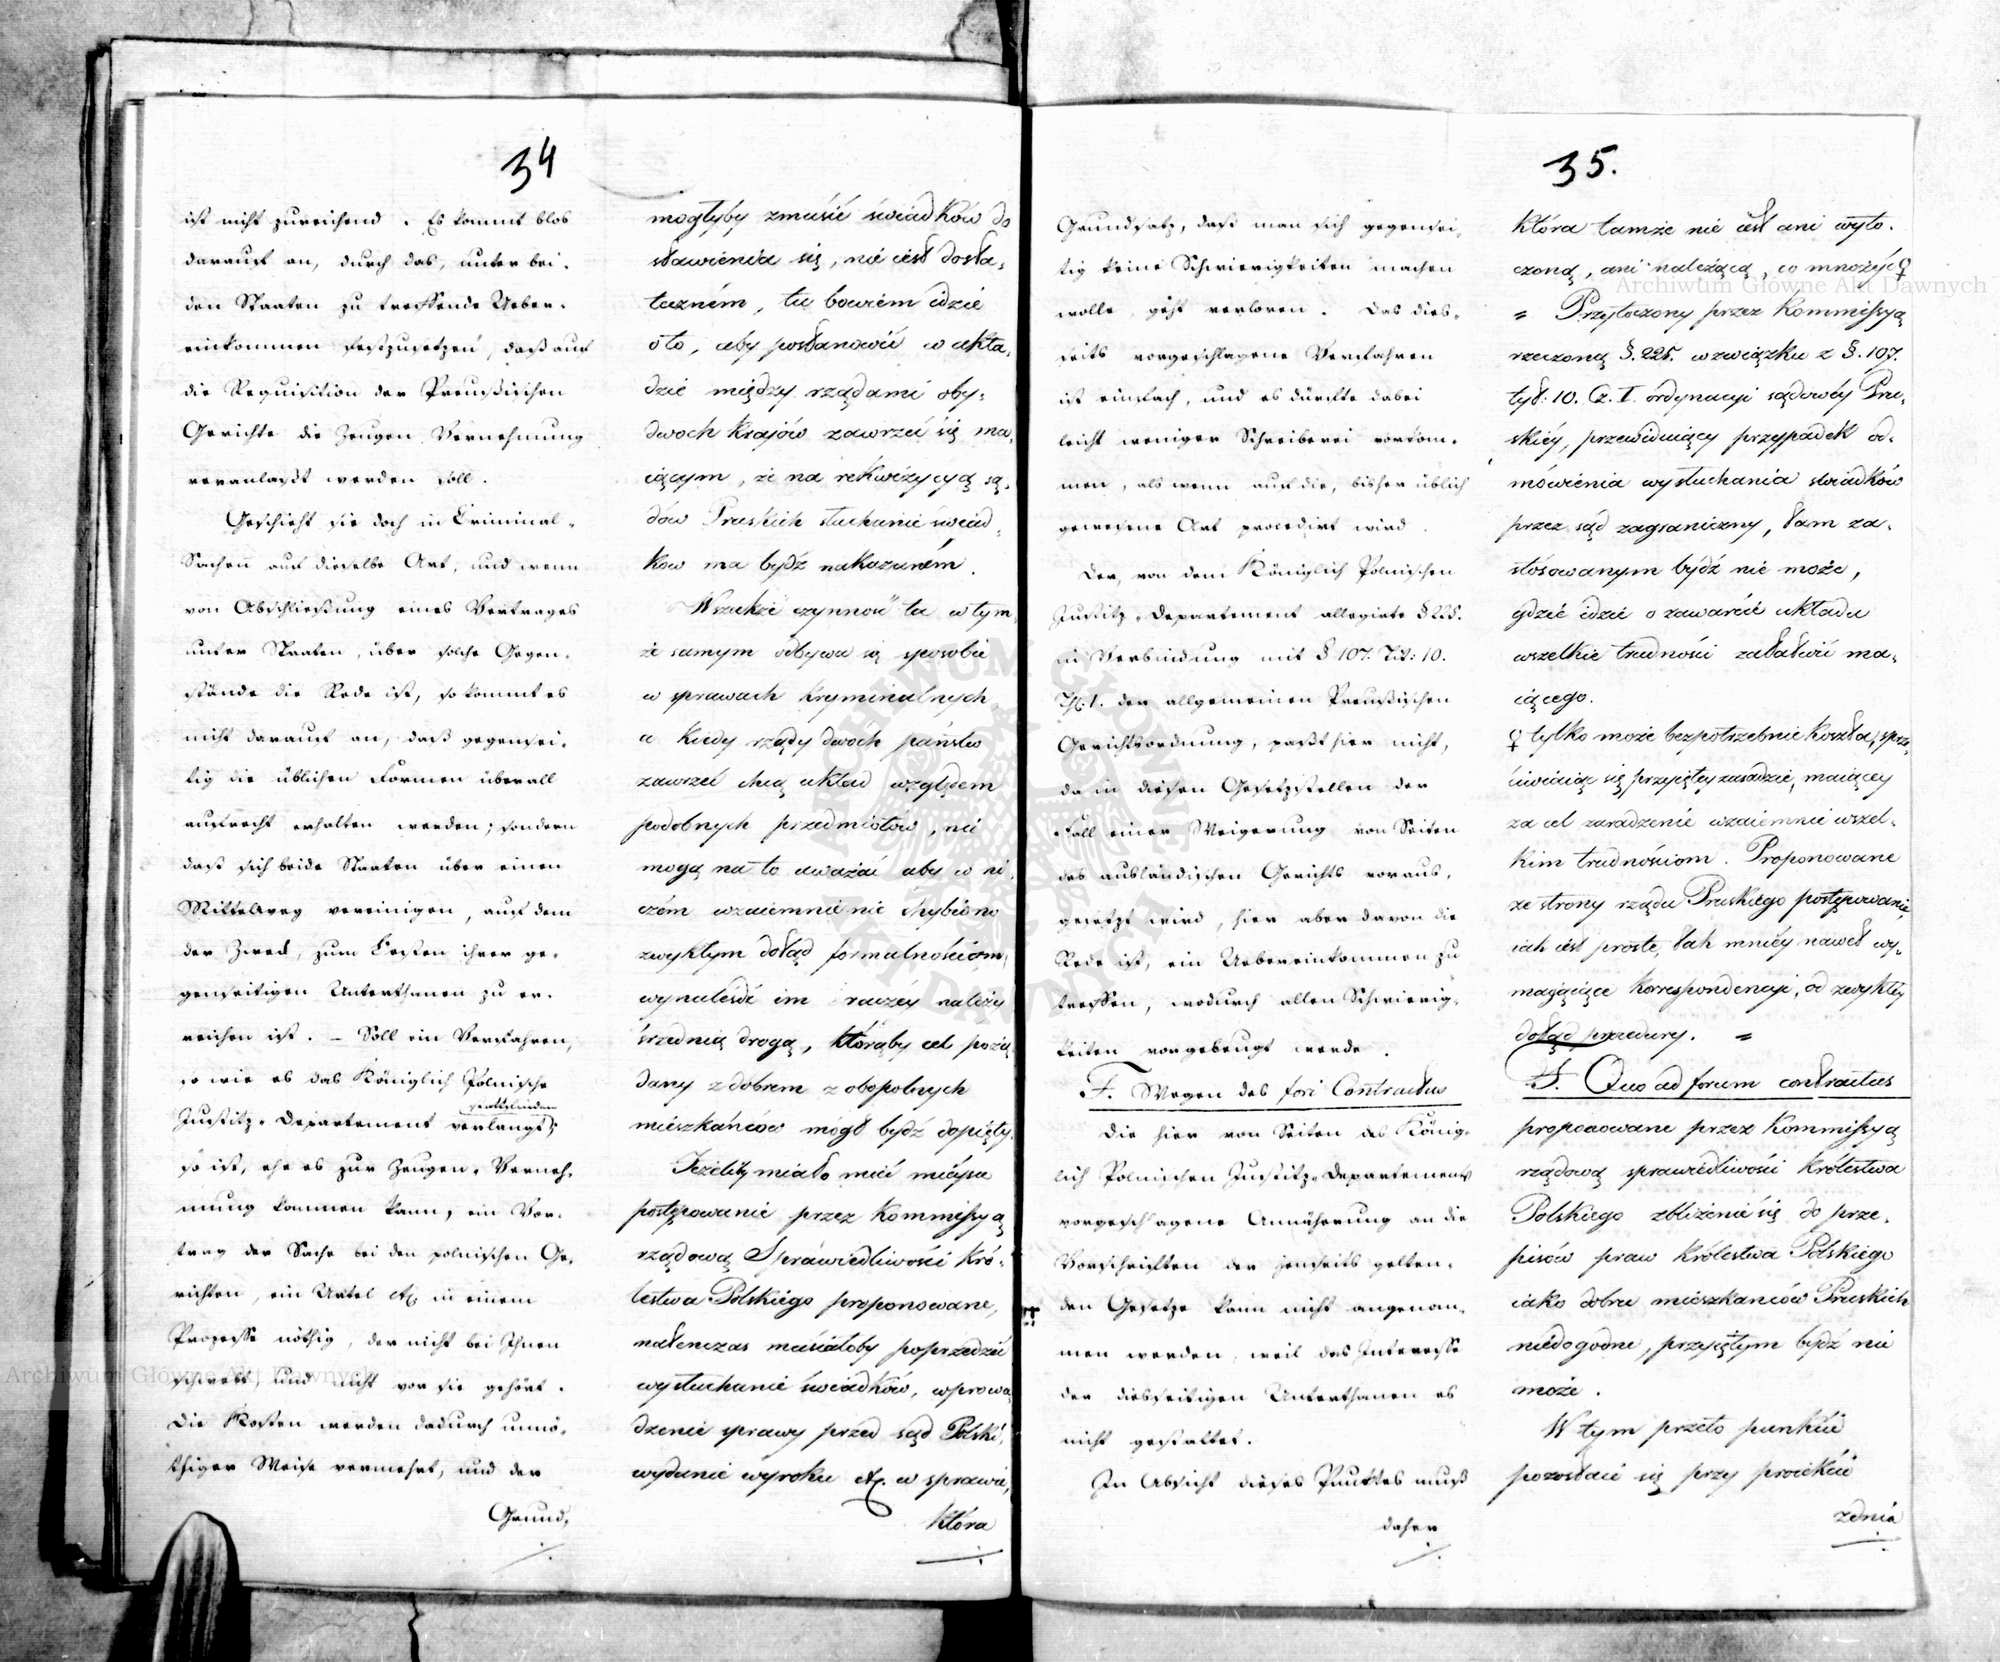 34
ist nicht zureichend. Es kommt blos
darauf an, durch das, unter bei-
den Staaten zu treffende Ueber-
einkommen festzusetzen, daß auf
die Requisition der Preußischen
Gerichte die Zeugen Vernehmung
veranlaßt werden soll.
Geschieht sie doch in Criminal-
Sachen auf dieselbe Art, und wenn
von Abschließung eines Vertrages
unter Staaten, über solche Gegen-
stände die Rede ist, so kommt es
nicht darauf an, daß gegensei-
tig die üblichen Formen überall
aufrecht erhalten werden; sondern
daß sich beide Staaten über einen
Mittelweg vereinigen, auf dem
der Zweck, zum Besten ihrer ge-
genseitigen Unterthanen zu er-
reichen ist. – Soll ein Verfahren,
so wie es das Königlich Polnische
stattfinden
Justitz-Departement verlangt;
so ist, ehe es zur Zeugen-Verneh-
mung kommen kann, ein Vor-
trag der Sache bei den polnischen Ge-
richten, ein Urtel etc. in einem
Prozesse nöthig, der nicht bei Ihnen
schwebt, und nicht vor sie gehört.
Die Kosten werden dadurch unnö-
thiger Weise vermehrt, und der
Grund-
mogłyby zmusić świadków do
stawienia się, nie iest dosta-
tecznem, tu bowiem idzie
o to, aby postanowić w ukła-
dzie między rządami oby-
dwoch Kraiów zawrzeć się ma-
iącym, że na rekwizycyą są-
dów Pruskich słuchanie świad-
ków ma bydź nakazanem.
Wszakże czynność ta w tym
że samym odbywa się sposobie
w sprawach kryminalnych,
a kiedy rządy dwóch państw
zawrzeć chcą układ względem
podobnych przedmiotów, nie
mogą na to uważać aby w ni-
czem wzaiemnie nie chybiono
zwykłym dotąd formalnościom,
wynaleśdź im raczéy należy
średnią drogą, którąby cel pożą-
dany z dobrem z obopolnych
mieszkańców mógł bydź dopięty.
Jeżeliby miało mieć mieysce
postępowanie przez Kommissyą
rządową Sprawiedliwości Kró-
lestwa Polskiego proponowane,
natenczas musiałoby poprzedzić
wysłuchanie świadków, wprowa-
dzenie sprawy przed sąd Polski,
wydanie wyroku etc. w sprawie,
która
35.
Grundsatz, daß man sich gegensei-
tig keine Schwierigkeiten machen
wolle, geht verloren. Das dies-
seits vorgeschlagene Verfahren
ist einfach, und es dürfte dabei
leicht weniger Schreiberei vorkom-
men, als wenn auf die, bisher üblich
gewesene Art procedirt wird.
Der, von dem Königlich Polnischen
Justitz-Departement allegirte § 225.
in Verbindung mit § 107. Tit: 10.
Th. 1. der allgemeinen Preußischen
Gerichtsordnung, paßt hier nicht,
da in diesen Gesetzstellen der
Fall einer Weigerung von Seiten
des ausländischen Gerichts voraus-
gesetzt wird, hier aber davon die
Rede ist, ein Uebereinkommen zu
treffen, wodurch allen Schwierig-
keiten vorgebeugt werde.
F. Wegen des fori Contractus
Die hier von Seiten des König-
lich Polnischen Justitz-Departements
vorgeschlagene Annäherung an die
Vorschriften der jenseits gelten-
den Gesetze kann nicht angenom-
men werden, weil das Interesse
der diesseitigen Unterthanen es
nicht gestattet.
In Absicht dieses Punktes muß
daher
która tamże nie iest ani wyto-
czoną, ani należącą, co mnożyć ♀
= Przytoczony przez Kommissyą
rzeczoną §. 225. w związku z §. 107.
tyt: 10. Cz. I. ordynacyi sądowéy Pru-
skiéy, przewiduiący przypadek od-
mówienia wysłuchania świadków
przez sąd zagraniczny, tam za-
stósowanym bydź nie może,
gdzie idzie o zawarcie układu
wszelkie trudności załatwić ma-
iącego.
♀ tylko może bezpotrzebnie koszta, sprze-
ciwiaiąc się przyiętéy zasadzie, maiącéy
za cel zaradzenie wzaiemnie wszel-
kim trudnościom. Proponowane
ze strony rządu Pruskiego postępowanie,
iak iest proste, tak mniéy nawet wy-
magaiące korrespondencyi, od zwykłéy
dotąd procedury. =
F. Quo ad forum contractus
proponowane przez Kommissyą
rządową sprawiedliwości Królestwa
Polskiego zbliżenie się do prze-
pisów praw Królestwa Polskiego
iako dobru mieszkańców Pruskich
niedogodne, przyiętym bydź nie
może.
W tym przeto punkcie
pozostaie się przy proiekcie
zdnia
Archiwum Główne Akt Dawnych
Archiwum Główne Akt Dawnych
ARCHIWUM GŁÓWNE AKT DAWNYCH